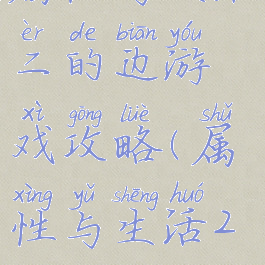 èr de biān yóu
二的边游
xì gòng lüè shǔ
戏攻略(属
xìng yǔ shēng huó
性与生活2